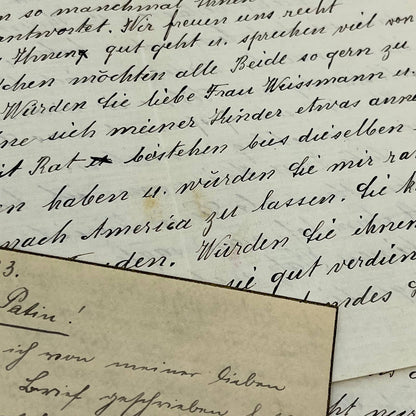 so manchmal Ihnen
antwortet. Wir freuen uns recht
Ihnen gut geht u. sprechen viel von
chen möchten alle Beide so gern zu
Würden Sie liebe Frau Weissmann u.
ne sich meiner Kinder etwas anne
it Rat beistehen bis dieselben
en haben u. würden Sie mir ra
nach America zu lassen. Sie k
den. Würden Sie ihnen
sie gut verdien
3.
Patin!
ich von meiner lieben
Brief geschrieben